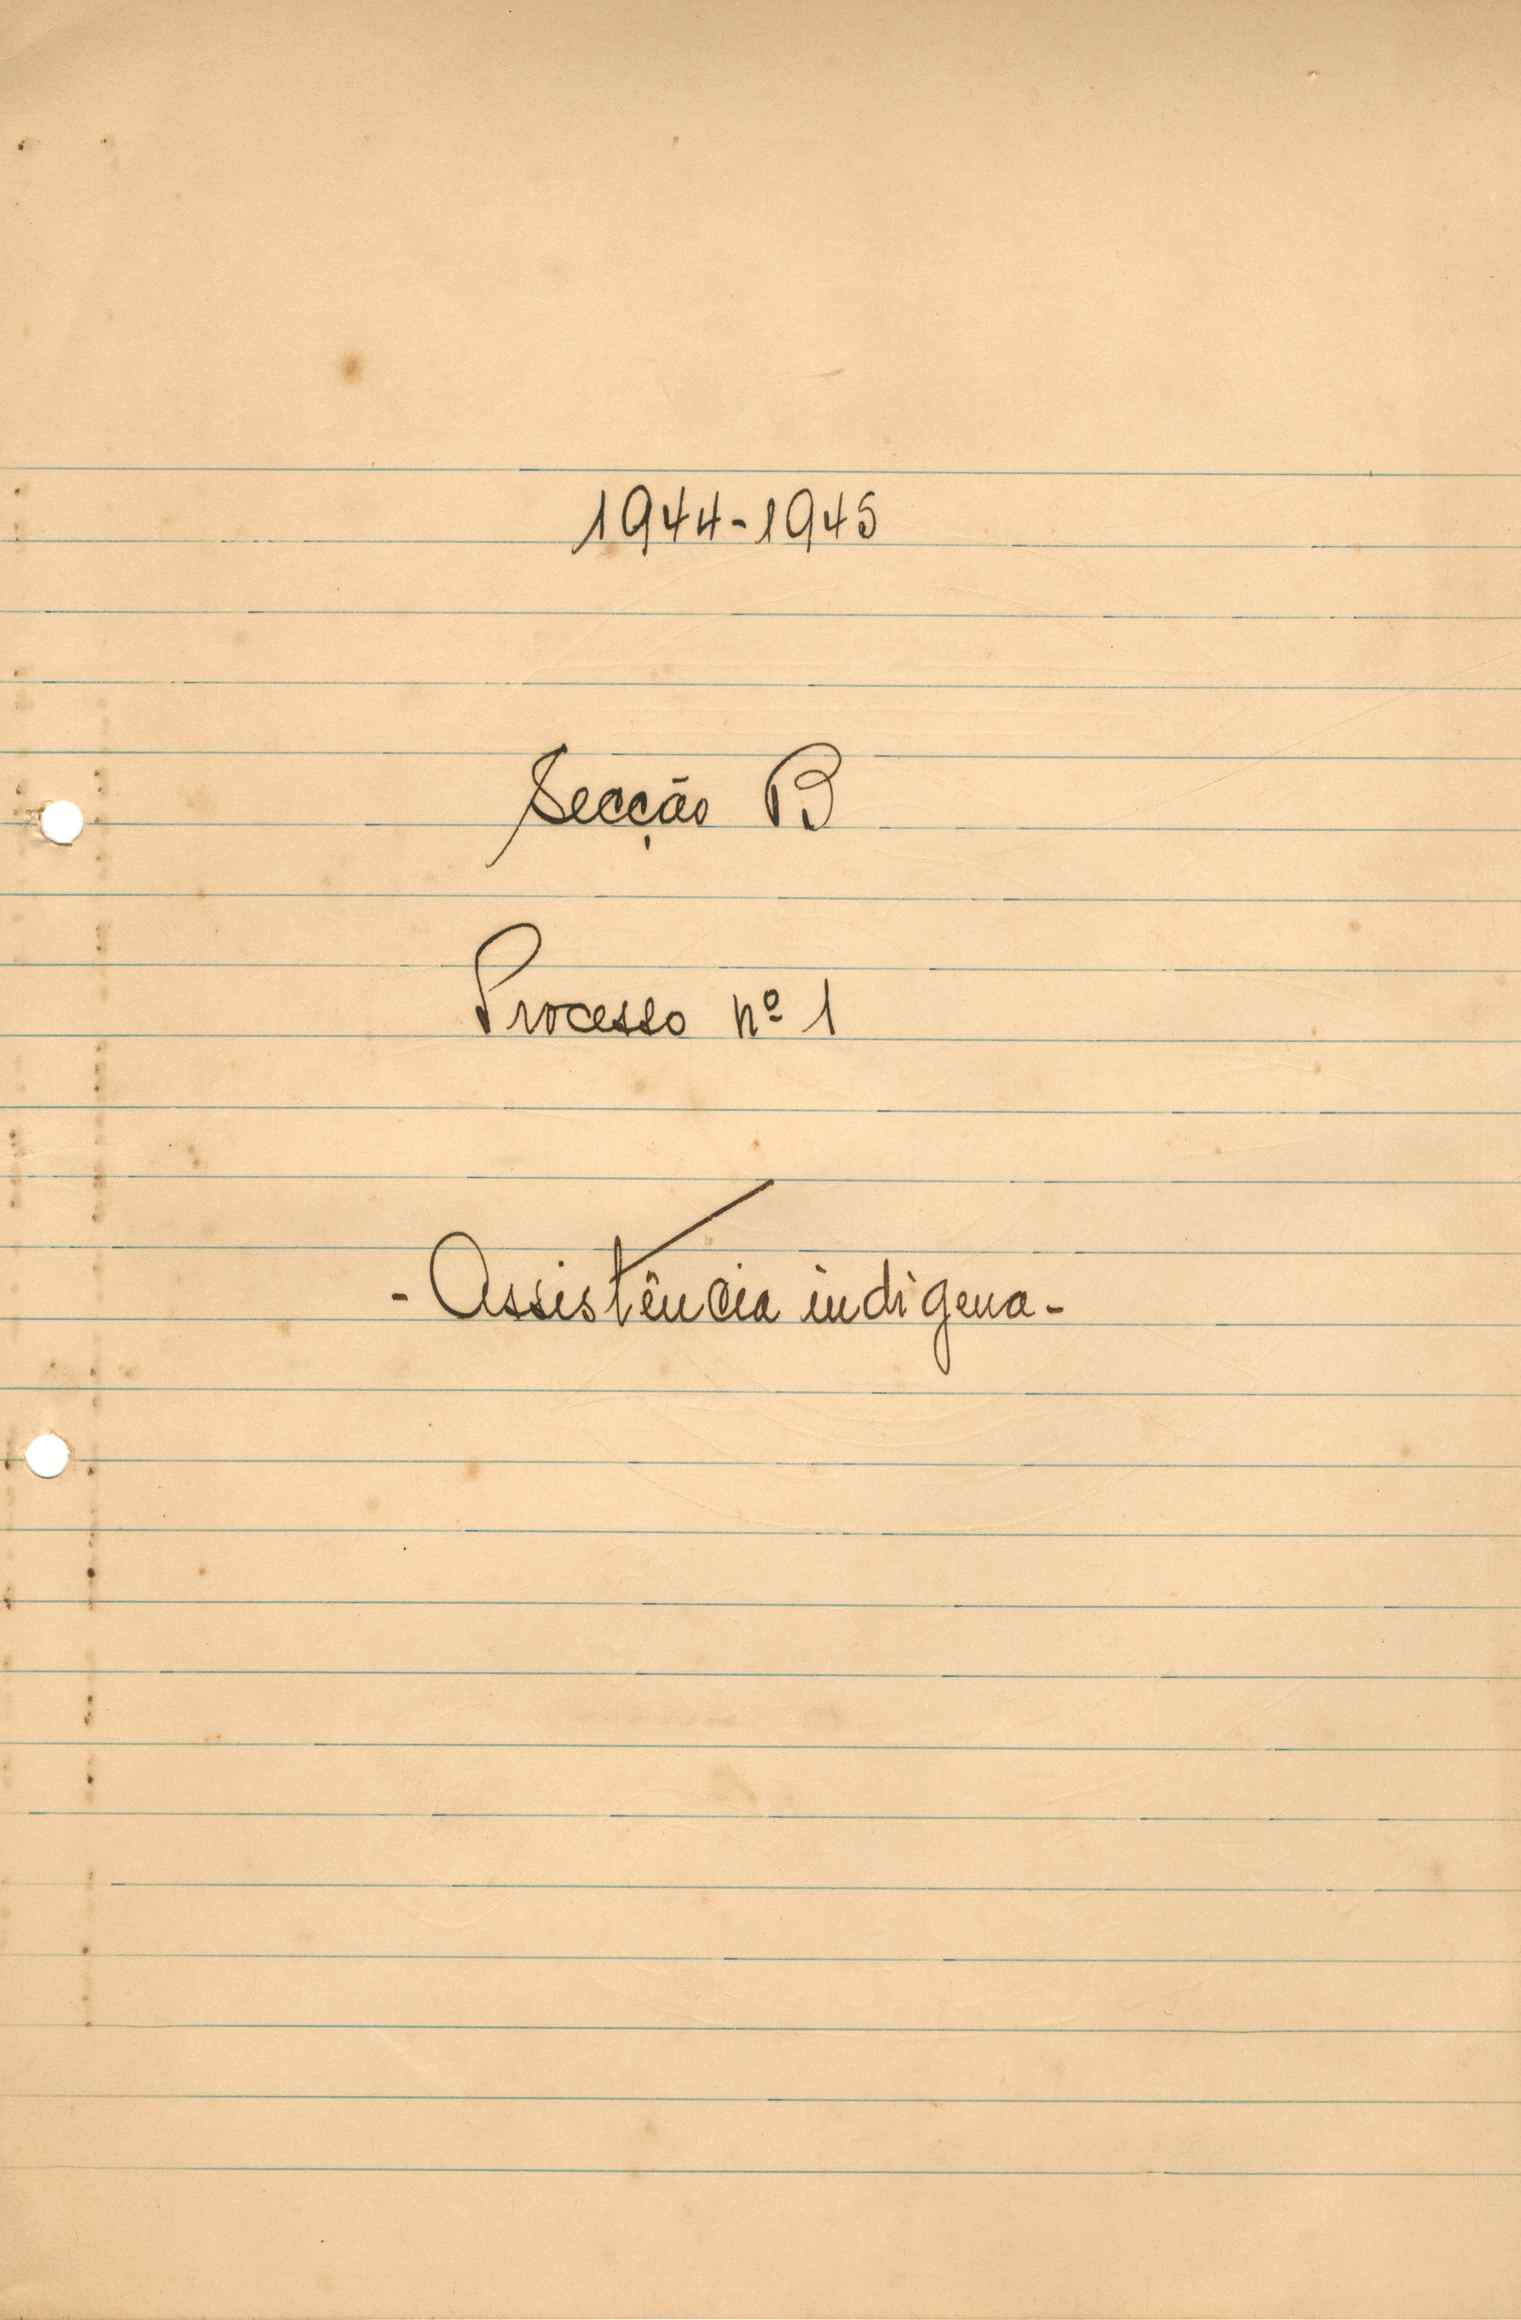 1944-1945
Secção B
Processo nº 1
- Assistência indigena -